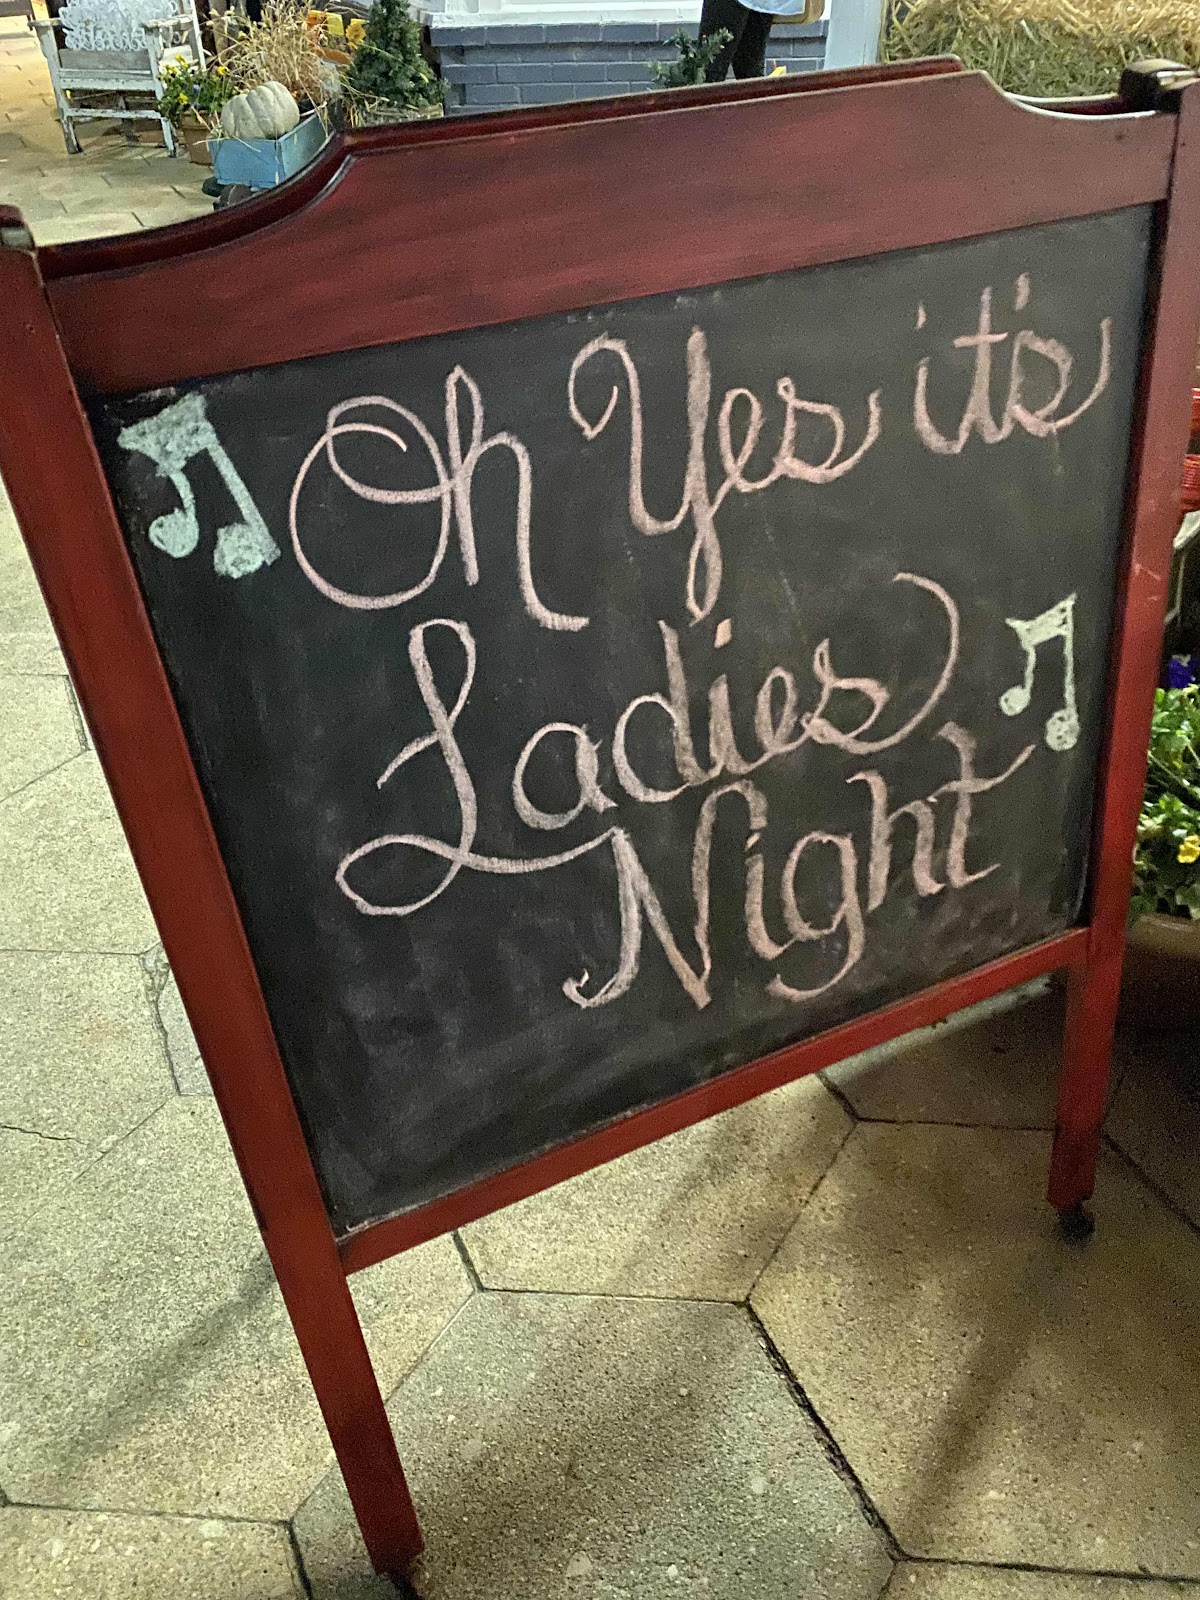 Oh Yes it's
Ladies
Night